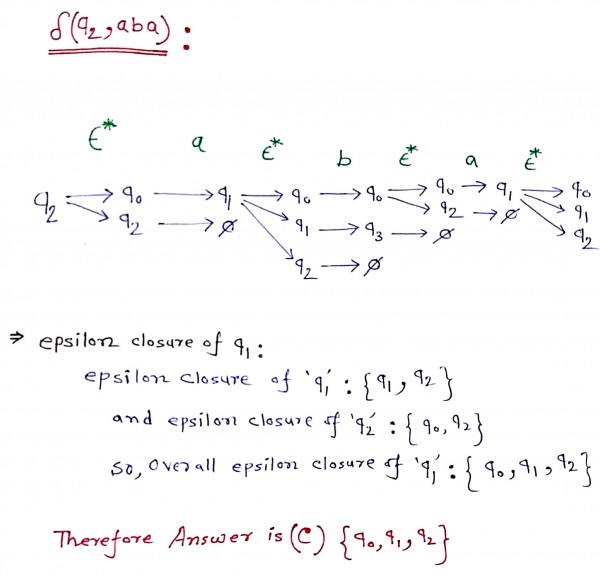 δ(q₂, aba) :
ϵ* a ϵ* b ϵ* a ϵ*
q₂ → q₀ → q₁ → q₀ → q₀ → q₀ → q₁ → q₀
→ q₂ → ∅ → q₁ → q₃ → ∅ → q₂ → ∅ → q₁
→ q₂ → ∅ → q₂
⇒ epsilon closure of q₁ :
epsilon closure of 'q₁' : {q₁, q₂}
and epsilon closure of 'q₂' : {q₀, q₂}
so, overall epsilon closure of 'q₁' : {q₀, q₁, q₂}
Therefore Answer is (C) {q₀, q₁, q₂}